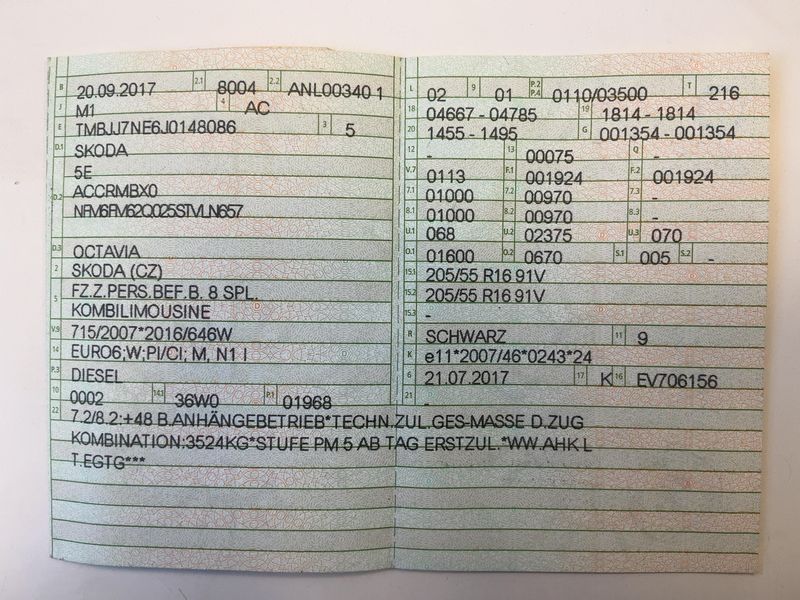 B 20.09.2017 2.1 8004 2.2 ANL00340 1
J M1 4 AC
E TMBJJ7NE6J0148086 3 5
D.1 SKODA
5E
D.2 ACCRMBX0
NFM6FM62Q025STVLN657
D.3 OCTAVIA
2 SKODA (CZ)
5 FZ.Z.PERS.BEF.B. 8 SPL.
KOMBILIMOUSINE
V.9 715/2007*2016/646W
14 EURO6;W;PI/CI; M, N1 I
P.3 DIESEL
10 0002 14.1 36W0 P.1 01968
L 02 9 01 P.2 P.4 0110/03500 T 216
18 04667 - 04785 19 1814 - 1814
20 1455 - 1495 G 001354 - 001354
12 - 13 00075 Q -
V.7 0113 F.1 001924 F.2 001924
7.1 01000 7.2 00970 7.3 -
8.1 01000 8.2 00970 8.3 -
U.1 068 U.2 02375 U.3 070
O.1 01600 O.2 0670 S.1 005 S.2 -
15.1 205/55 R16 91V
15.2 205/55 R16 91V
15.3 -
R SCHWARZ 11 9
K e11*2007/46*0243*24
6 21.07.2017 17 K 16 EV706156
21 -
22 7.2/8.2:+48 B.ANHÄNGEBETRIEB*TECHN.ZUL.GES-MASSE D.ZUG
KOMBINATION:3524KG*STUFE PM 5 AB TAG ERSTZUL.*WW.AHK L
T.EGTG***